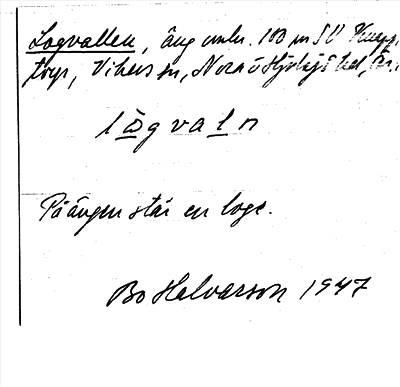 Logvallen, äng omkr. 103 m SV Knapp
torp, Vikers sn, Nora o Hjulsjö bel, Ör.
lògvaln
På ängen står en loge.
Bo Halvarson 1947